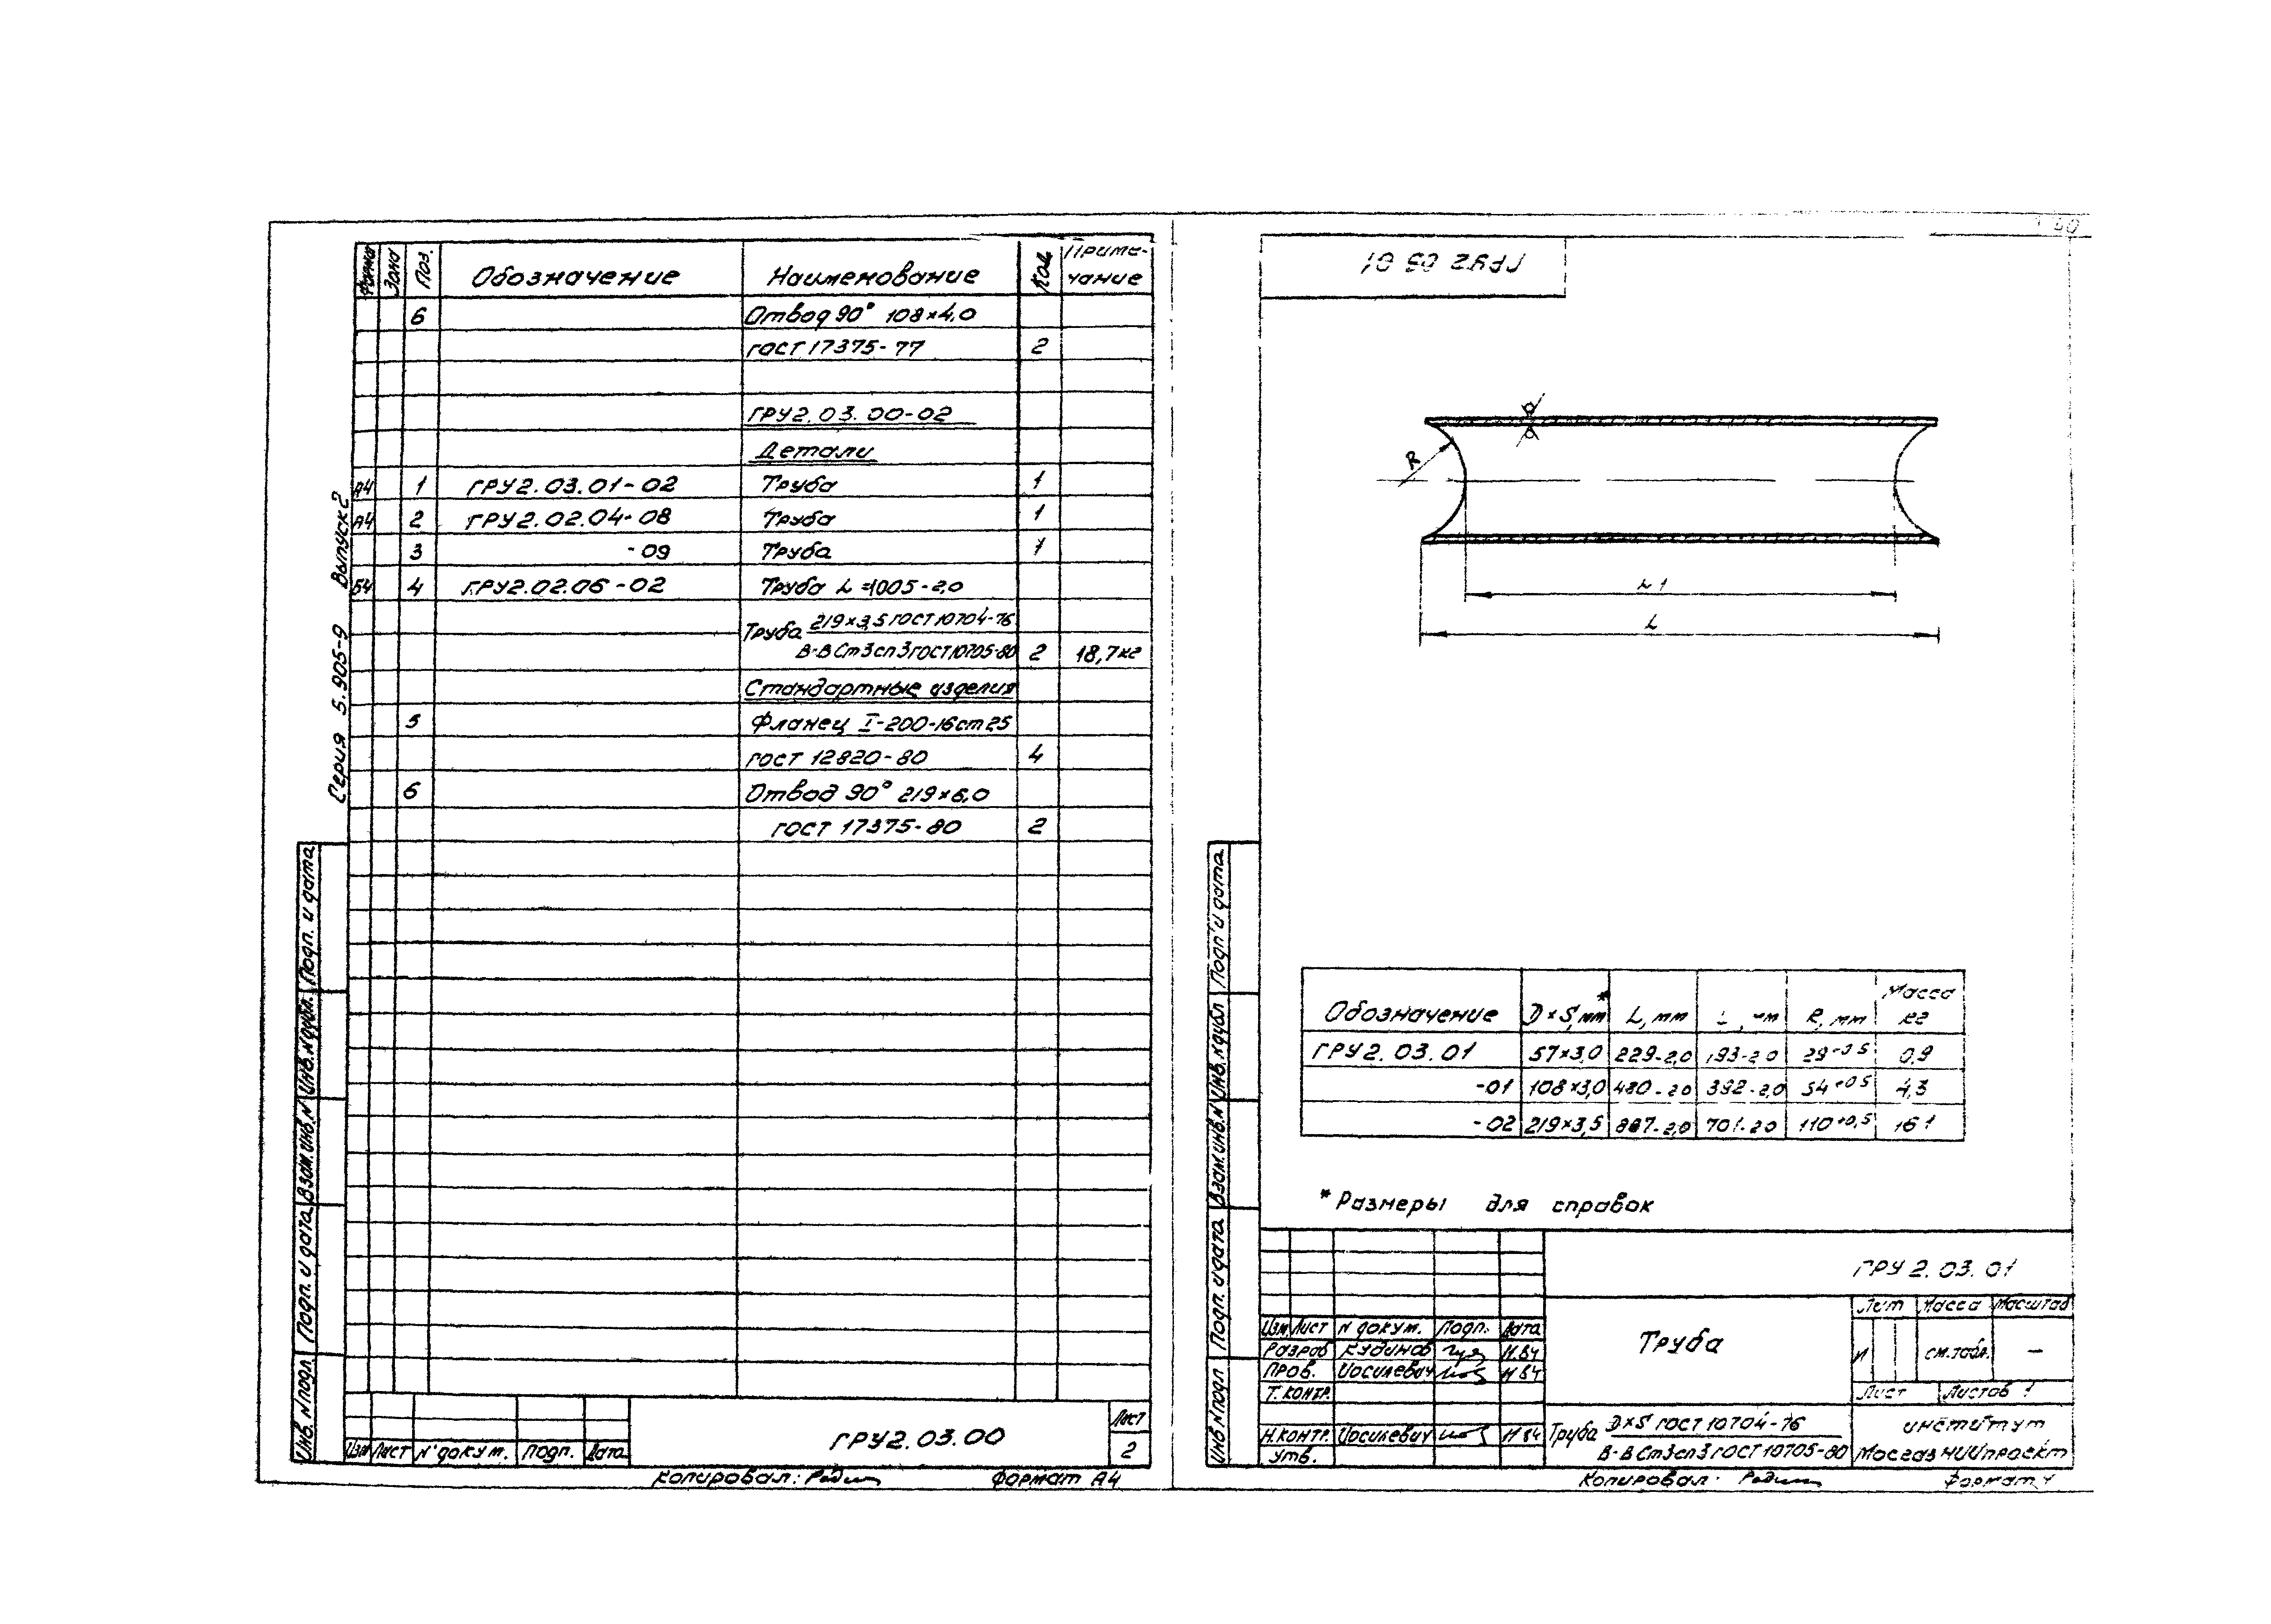 Серия 5.905-9 Выпуск 2
Форма Зона Поз. Обозначение Наименование Кол. Приме-
чание
6 Отвод 90° 108×4,0
ГОСТ 17375-77 2
ГРУ2.03.00-02
Детали
А4 1 ГРУ2.03.01-02 Труба 1
А4 2 ГРУ2.02.04-08 Труба 1
3 -09 Труба 1
Б4 4 ГРУ2.02.06-02 Труба L=1005-2,0
Труба 219×3,5 ГОСТ 10704-76
В-В Ст3сп3 ГОСТ 10705-80 2 18,7кг
Стандартные изделия
5 Фланец I-200-16 ст 25
ГОСТ 12820-80 4
6 Отвод 90° 219×6,0
ГОСТ 17375-80 2
Подп. и дата
Инв. N дубл.
Взам. инв. N
Подп. и дата
Инв. N подл
Изм Лист N° докум. Подп. Дата
ГРУ2.03.00
Лист
2
Копировал: Формат А4
ГРУ2 03 01
R
L1
L
Обозначение D×S, мм* L, мм R, мм Масса
кг
ГРУ2.03.01 57×3,0 229-2,0 193-2.0 29 0,9
-01 108×3,0 480-2,0 392-2,0 54+0,5 4,3
-02 219×3,5 887-2,0 701-2.0 110+0,5 16 1
* Размеры для справок
Подп и дата
Инв. N дубл
Взам. инв. N
Подп. и дата
Инв N подл
ГРУ 2.03.01
Изм Лист N докум. Подп. Дата
Разраб Кудинов
Пров. Иосилевич
Т. контр.
Н.контр. Иосилевич
Утв.
Труба
Лит Масса Масштаб
И см.табл. —
Лист Листов 1
Труба D×S ГОСТ 10704-76
В-В Ст3сп3 ГОСТ 10705-80
институт
МосгазНИИпроект
Копировал: Формат